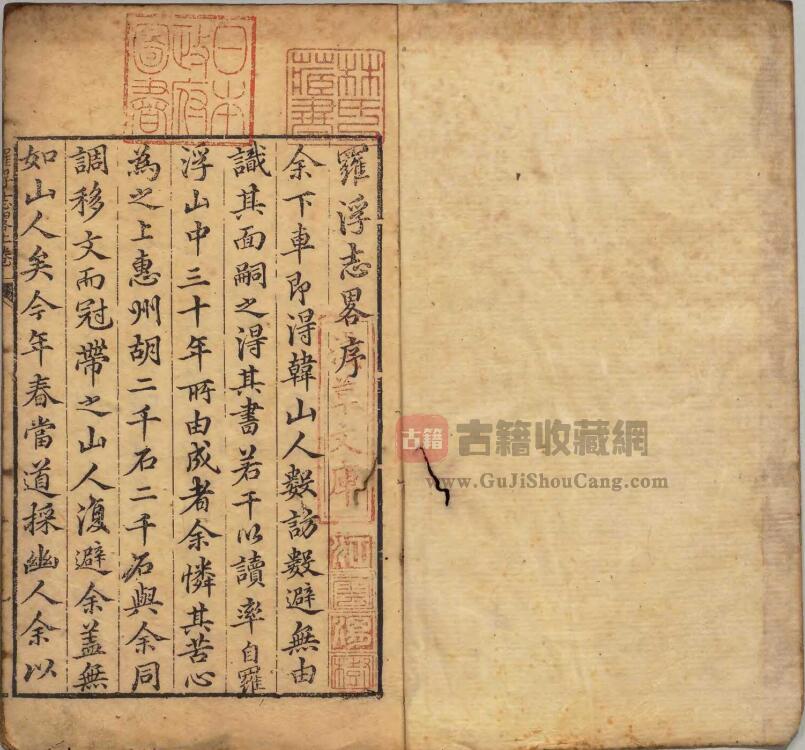 羅浮志畧序
余下車即得韓山人數訪數避無由
識其面嗣之得其書若干以讀率自羅
浮山中三十年所由成者余憐其苦心
為之上惠州胡二千石二千石與余同
調移文而冠帶之山人復避余蓋無
如山人矣今年春當道採幽人余以
林氏藏書
日本政府圖書
淺草文庫
江雲渭樹
古籍
古籍收藏網
www.GuJiShouCang.com